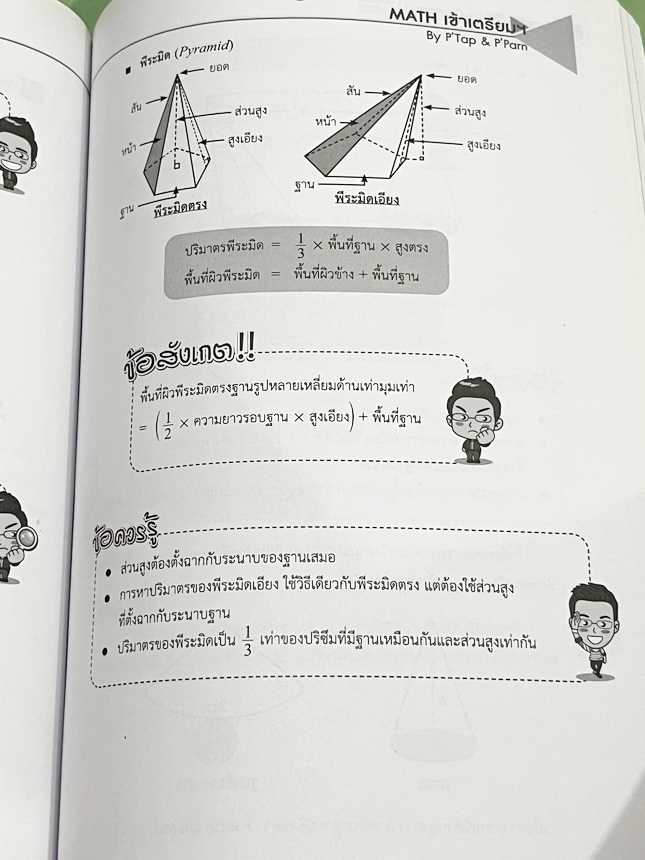 MATH เข้าเตรียมฯ
By P'Tap & P'Parn
▪ พีระมิด (Pyramid)
ยอด
สัน
ส่วนสูง
หน้า
สูงเอียง
ฐาน
พีระมิดตรง
ยอด
สัน
ส่วนสูง
หน้า
สูงเอียง
ฐาน
พีระมิดเอียง
ปริมาตรพีระมิด = 1/3 × พื้นที่ฐาน × สูงตรง
พื้นที่ผิวพีระมิด = พื้นที่ผิวข้าง + พื้นที่ฐาน
ข้อสังเกต!!
พื้นที่ผิวพีระมิดตรงฐานรูปหลายเหลี่ยมด้านเท่ามุมเท่า
= (1/2 × ความยาวรอบฐาน × สูงเอียง) + พื้นที่ฐาน
ข้อควรรู้
• ส่วนสูงต้องตั้งฉากกับระนาบของฐานเสมอ
• การหาปริมาตรของพีระมิดเอียง ใช้วิธีเดียวกับพีระมิดตรง แต่ต้องใช้ส่วนสูง
ที่ตั้งฉากกับระนาบฐาน
• ปริมาตรของพีระมิดเป็น 1/3 เท่าของปริซึมที่มีฐานเหมือนกันและส่วนสูงเท่ากัน